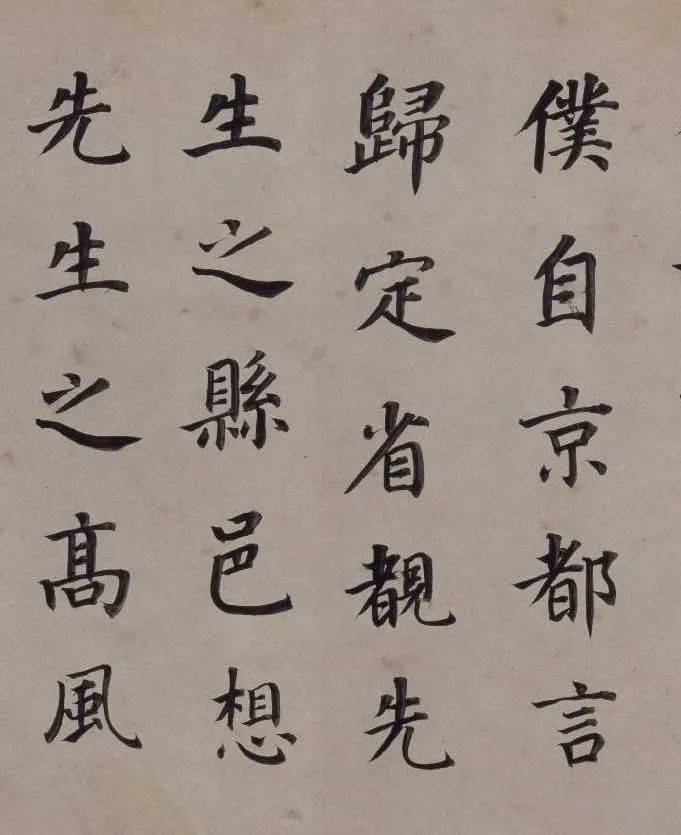 僕自京都言
歸定省覩先
生之縣邑想
先生之髙風